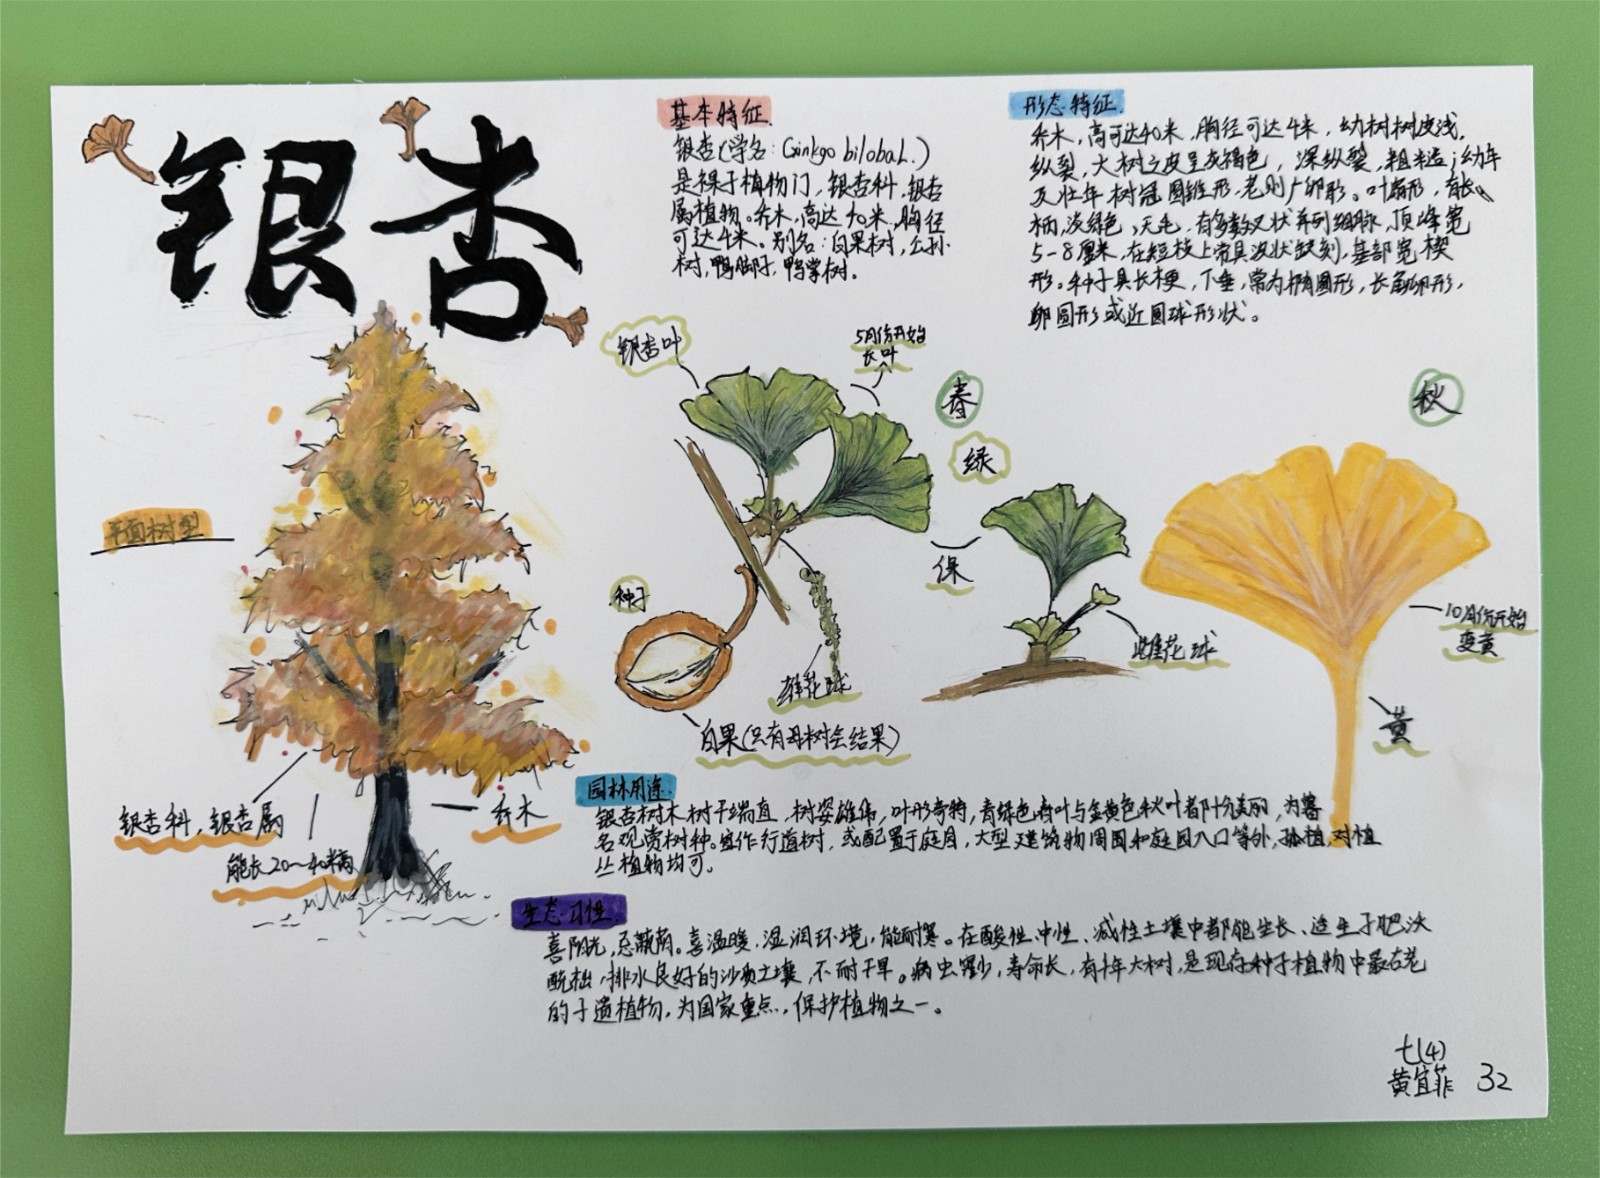 银杏
基本特征
银杏(学名: Ginkgo biloba L.)
是裸子植物门,银杏科,银杏
属植物。乔木,高达40米,胸径
可达4米。别名:白果树,公孙
树,鸭脚子,鸭掌树。
形态特征
乔木,高可达40米,胸径可达4米,幼树树皮浅
纵裂,大树之皮呈灰褐色,深纵裂,粗糙;幼年
及壮年树冠圆锥形,老则广卵形。叶扇形,有长
柄,淡绿色,无毛,有多数叉状并列细脉,顶峰宽
5-8厘米,在短枝上常具波状缺刻,基部宽楔
形。种子具长梗,下垂,常为椭圆形,长倒卵形,
卵圆形或近圆球形状。
银杏叶
5月份开始
长叶
春
绿
秋
平面树型
种子
保
雄花球
雌花球
10月份开始
变黄
黄
白果(只有母树会结果)
银杏科,银杏属
能长20~40米高
乔木
园林用途
银杏树木树干端直,树姿雄伟,叶形奇特,青绿色春叶与金黄色秋叶都十分美丽,为著
名观赏树种。宜作行道树,或配置于庭园,大型建筑物周围和庭园入口等外,孤植,对植
丛植物均可。
生态习性
喜阳光,忌荫蔽。喜温暖,湿润环境,能耐寒。在酸性、中性、减性土壤中都能生长、适生于肥沃
疏松,排水良好的沙质土壤,不耐干旱。病虫害少,寿命长,有千年大树,是现存种子植物中最古老
的孑遗植物,为国家重点,保护植物之一。
七(4)
黄宜菲 32